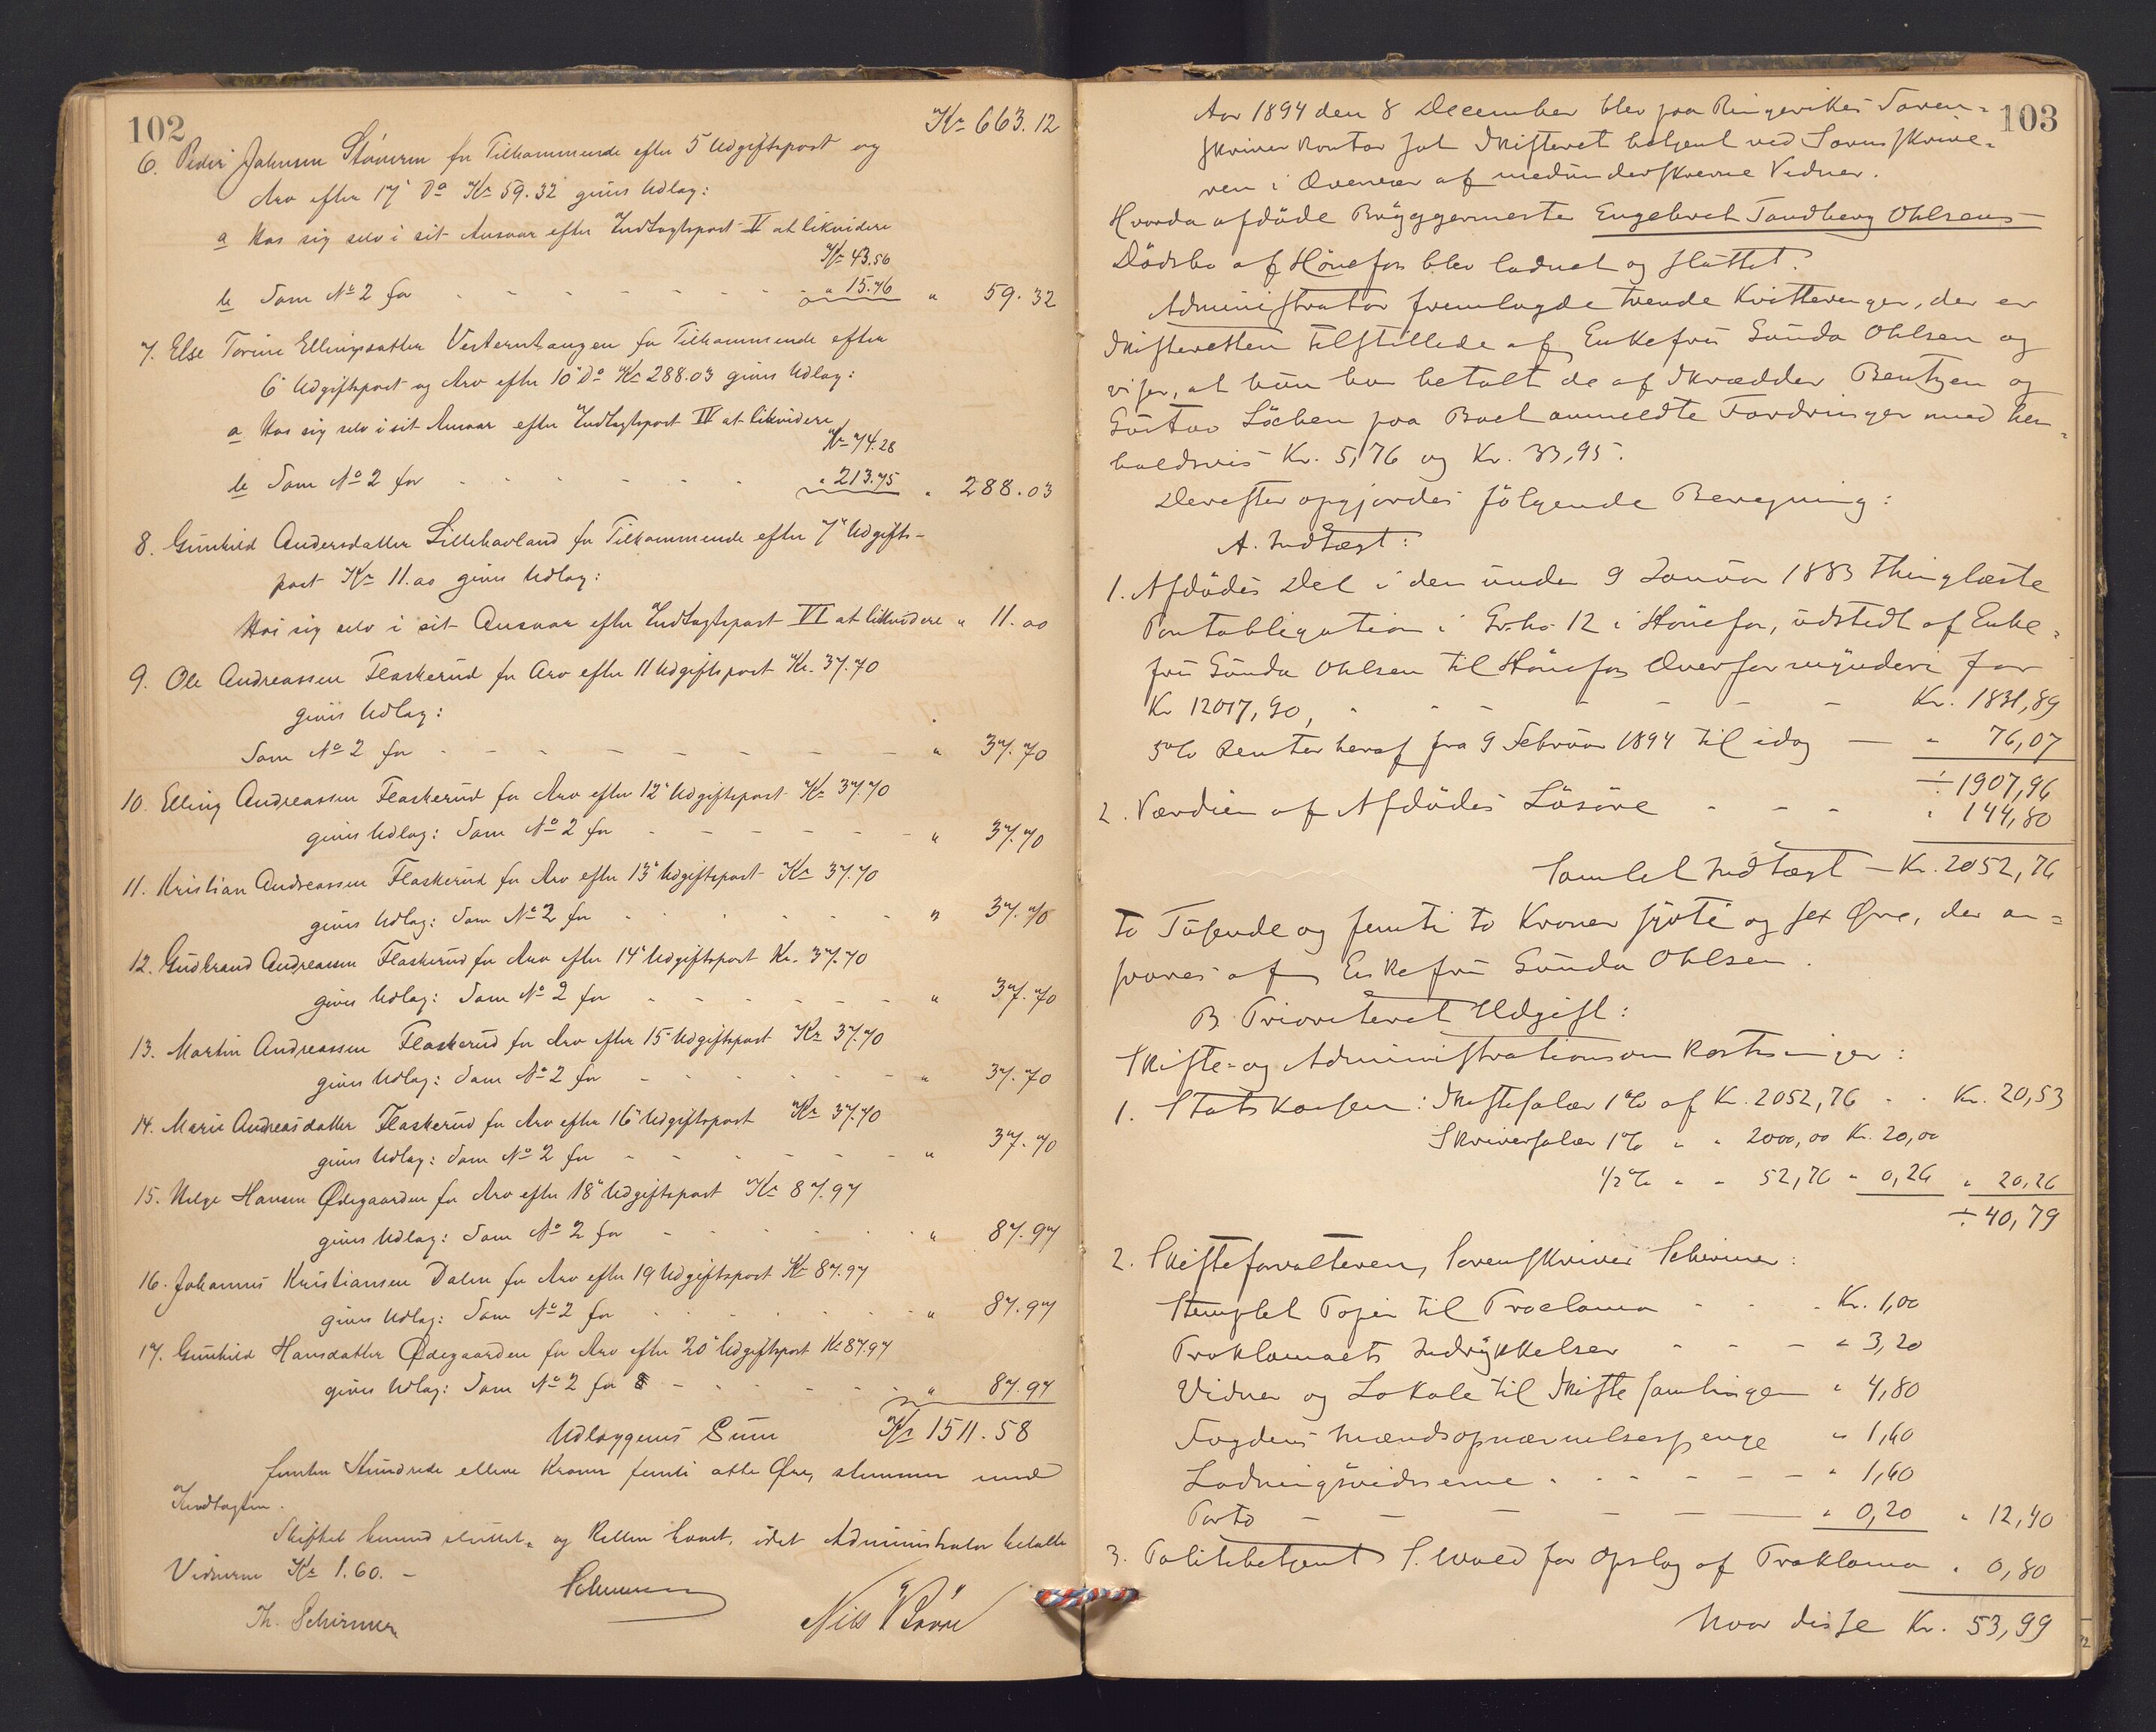 102
Kr 663.12
6. Peder Johnsen Støveren for Tilkommende efter 5 Udgiftspost og
Arv efter 17' Do Kr 59.32 gives Udlæg:
a Hos sig selv i sit Ansvar efter Indtægtspost V at likvidere
Kr 43.56
b Som No 2 for " 15.76 " 59.32
7. Else Torine Ellingsdatter Vesterntangen for Tilkommende efter
6' Udgiftspost og Arv efter 10' Do Kr 288.03 gives Udlæg:
a Hos sig selv i sit Ansvar efter Indtægtspost IV at likvidere
Kr 74.28
b Som No 2 for " 213.75 " 288.03
8. Gunhild Andersdatter Lillehavland for Tilkommende efter 7' Udgifts-
post Kr 11.00 gives Udlæg:
Hos sig selv i sit Ansvar efter Indtægtspost VI at likvidere " 11.00
9. Ole Andreassen Flaskerud for Arv efter 11 Udgiftspost Kr. 37.70
gives Udlæg:
Som No 2 for " 37.70
10. Elling Andreassen Flaskerud for Arv efter 12' Udgiftspost Kr 37.70
gives Udlæg: Som No 2 for " 37.70
11. Kristian Andreassen Flaskerud for Arv efter 13' Udgiftspost Kr 37.70
gives Udlæg: Som No 2 for " 37.70
12. Gudbrand Andreassen Flaskerud for Arv efter 14' Udgiftspost Kr. 37.70
gives Udlæg: Som No 2 for " 37.70
13. Martin Andreassen Flaskerud for Arv efter 15' Udgiftspost Kr 37.70
gives Udlæg: Som No 2 for " 37.70
14. Marie Andreasdatter Flaskerud for Arv efter 16' Udgiftspost Kr 37.70
gives Udlæg: Som No 2 for " 37.70
15. Helge Hansen Ødegaarden for Arv efter 18' Udgiftspost Kr 87.97
gives Udlæg: Som No 2 for " 87.97
16. Johannes Kristiansen Dalen for Arv efter 19 Udgiftspost Kr 87.97
gives Udlæg: Som No 2 for " 87.97
17. Gunhild Hansdatter Ødegaarden for Arv efter 20' Udgiftspost Kr 87.97
gives Udlæg: Som No 2 for " 87.97
Udlæggenes Sum Kr 1511.58
femten Hundrede elleve Kroner femti otte Øre, stemmer med
Indtægten.
Skiftet hermed sluttet, og Retten hævet, idet Administrator betalte
Vidnerne Kr 1.60. -
Schirmer
Th. Schirmer Nils

103
Aar 1894 den 8 December blev paa Ringerikes Soren=
skriverkontor sat Skifteret betjent ved Sorenskrive=
ren i Overvær af medunderskrevne Vidner.
Hvorda afdøde Bryggermester Engebret Tandberg Ohlsens
Dødsbo af Hønefos blev ladnet og sluttet.
Administrator fremlagde tvende Kvitteringer, der er
Skifteretten tilstillede af Enkefru Gunda Ohlsen og
viser, at hun har betalt de af Skrædder Bentzen og
Gustav Løchen paa Boet anmeldte Fordringer med hen=
holdsvis Kr. 5,76 og Kr. 33,95.
Derefter opgjordes følgende Beregning:
A. Indtægt:
1. Afdødes Del i den under 9 Januar 1883 thinglæste
Pantobligation i Gr. No. 12 i Hønefos, udstedt af Enke=
fru Gunda Ohlsen til Hønefos Overformynderi for
Kr 12017,90, Kr. 1831,89
5% Renter heraf fra 9 Februar 1894 til idag " 76,07
÷ 1907,96
2. Værdien af Afdødes Løsøre " 144,80
Samlet Indtægt Kr. 2052,76
to Tusende og femti to Kroner sytti og sex Øre, der an=
svares af Enkefru Gunda Ohlsen.
B. Prioriteret Udgift:
Skifte- og Administrationsomkostninger:
1. Statskassen: Skiftesalær 1% af Kr. 2052,76 Kr. 20,53
Skriversalær 1% " " 2000,00 Kr. 20,00
1/2% " " 52,76 " 0,26 " 20,26
÷ 40,79
2. Skifteforvalteren, Sorenskriver Schirmer:
Stemplet Papir til Proclama Kr. 1,00
Proklamaets Indrykkelser " 3,20
Vidner og Lokale til Skiftesamlingen " 4,80
Fogdens Mændsopnævnelsespenge " 1,60
Ladningsvidnerne " 1,60
Porto " 0,20 " 12,40
3. Politibetjent S. Wold for Opslag af Proklama " 0,80
hvor disse Kr. 53,99